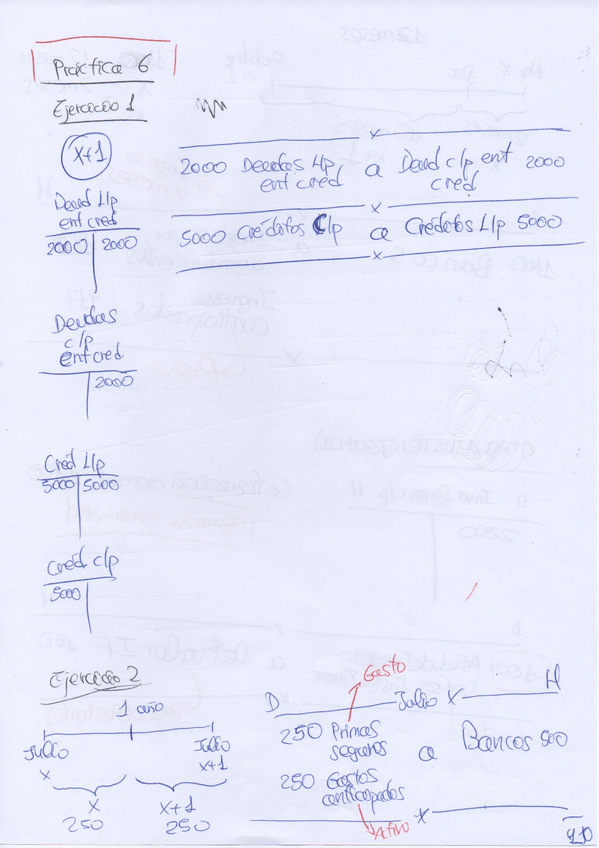 Práctica 6
Ejercicio 1
X+1
2000 Deudas L/p a Deud c/p ent 2000
ent cred cred
5000 Créditos C/p a Créditos L/p 5000
Deud L/p
ent cred
2000 2000
Deudas
c/p
ent cred
2000
Cred L/p
5000 5000
Cred c/p
5000
Ejercicio 2
1 año
Julio Julio
X X+1
X X+1
250 250
Gasto
D Julio X H
250 Primas
seguros a Bancos 500
250 Gastos
anticipados
Activo